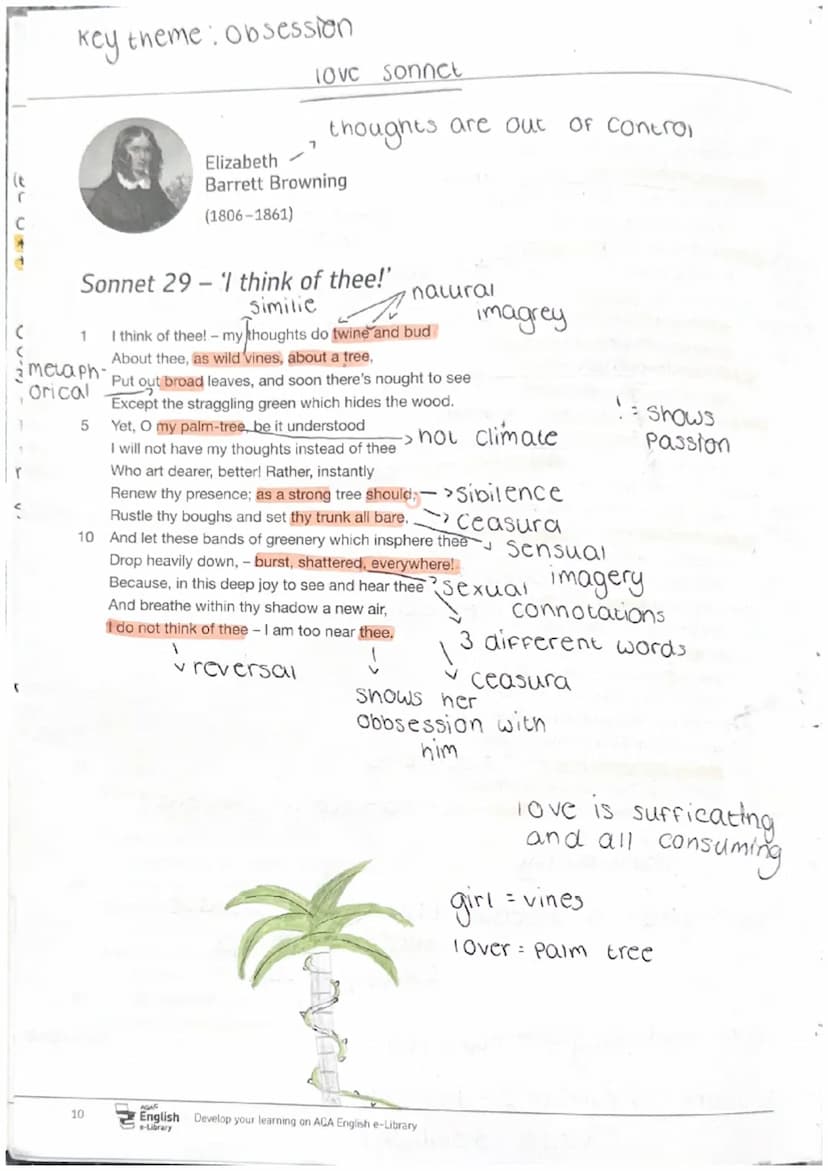 Key theme: Obsession
love sonnet
thoughts are out of control
Elizabeth
Barrett Browning
(1806–1861)
Sonnet 29 – ‘I think of thee!’
similie
natural
imagrey
1 I think of thee! – my thoughts do twine and bud
About thee, as wild vines, about a tree,
metaph-
orical
Put out broad leaves, and soon there's nought to see
Except the straggling green which hides the wood.
5 Yet, O my palm-tree, be it understood
I will not have my thoughts instead of thee
hot climate
! = shows
passion
Who art dearer, better! Rather, instantly
Renew thy presence; as a strong tree should,
sibilence
Rustle thy boughs and set thy trunk all bare,
ceasura
10 And let these bands of greenery which insphere thee
sensual
imagery
Drop heavily down, – burst, shattered, everywhere!
Because, in this deep joy to see and hear thee
sexual
connotations
And breathe within thy shadow a new air,
I do not think of thee – I am too near thee.
3 different words
ceasura
reversal
shows her
obbsession with
him
love is sufficating
and all consuming
girl = vines
lover = palm tree
10
AQA
English
e-Library
Develop your learning on AQA English e-Library